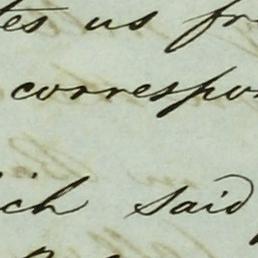 tes us fr
correspon
ich said